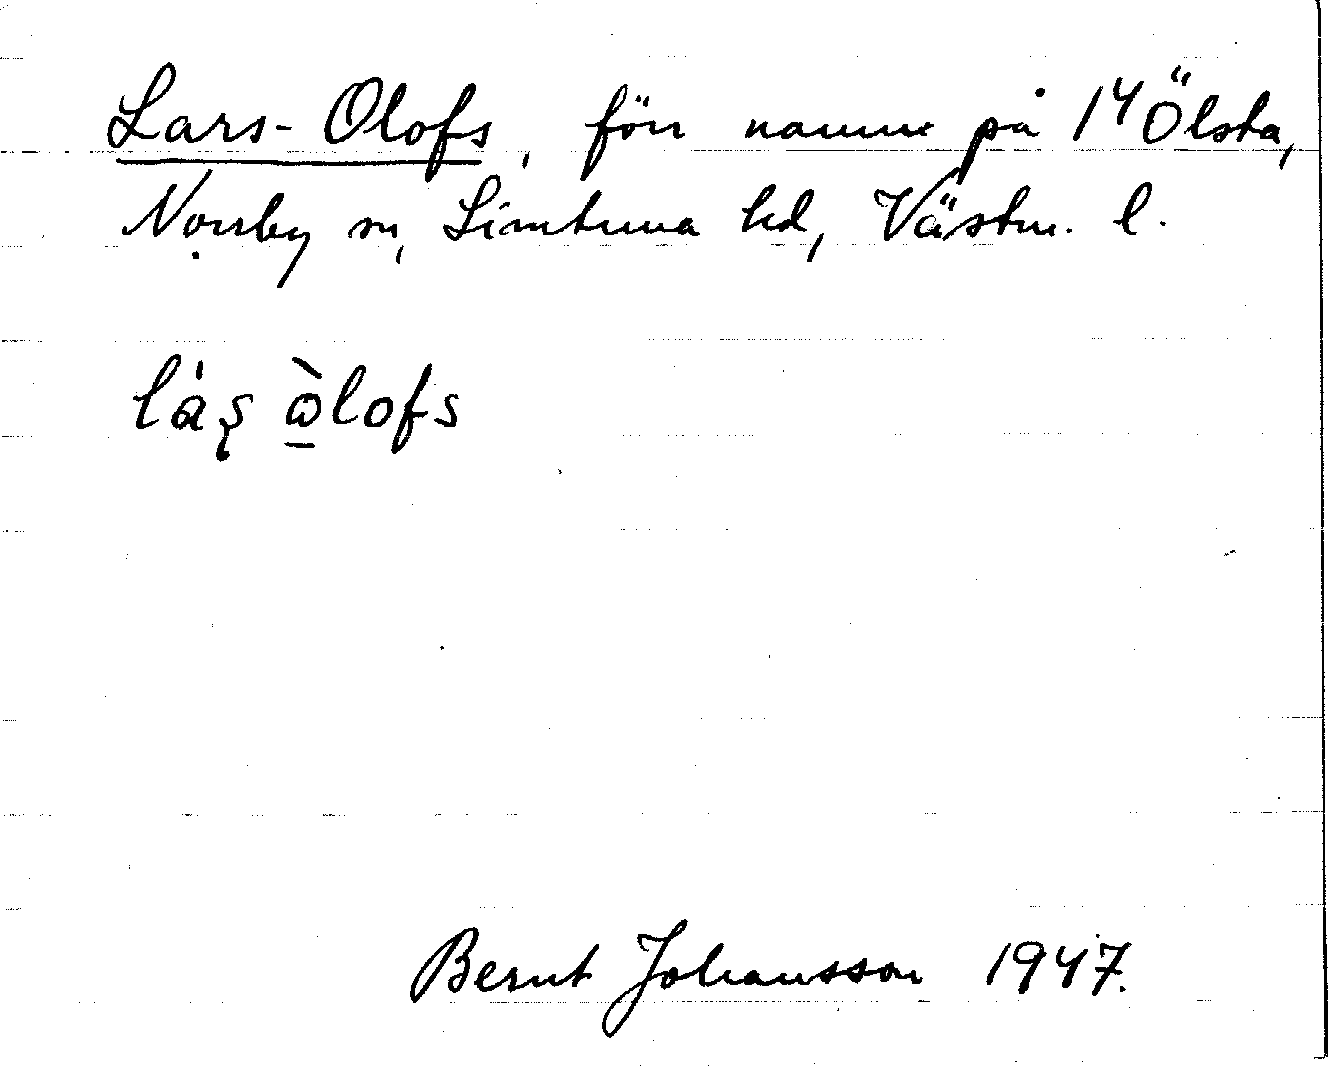 Lars-Olofs, förr namn på 14 Ölsta,
Norrby sn, Simtuna hd, Västm. l.
Bernt Johansson 1947.